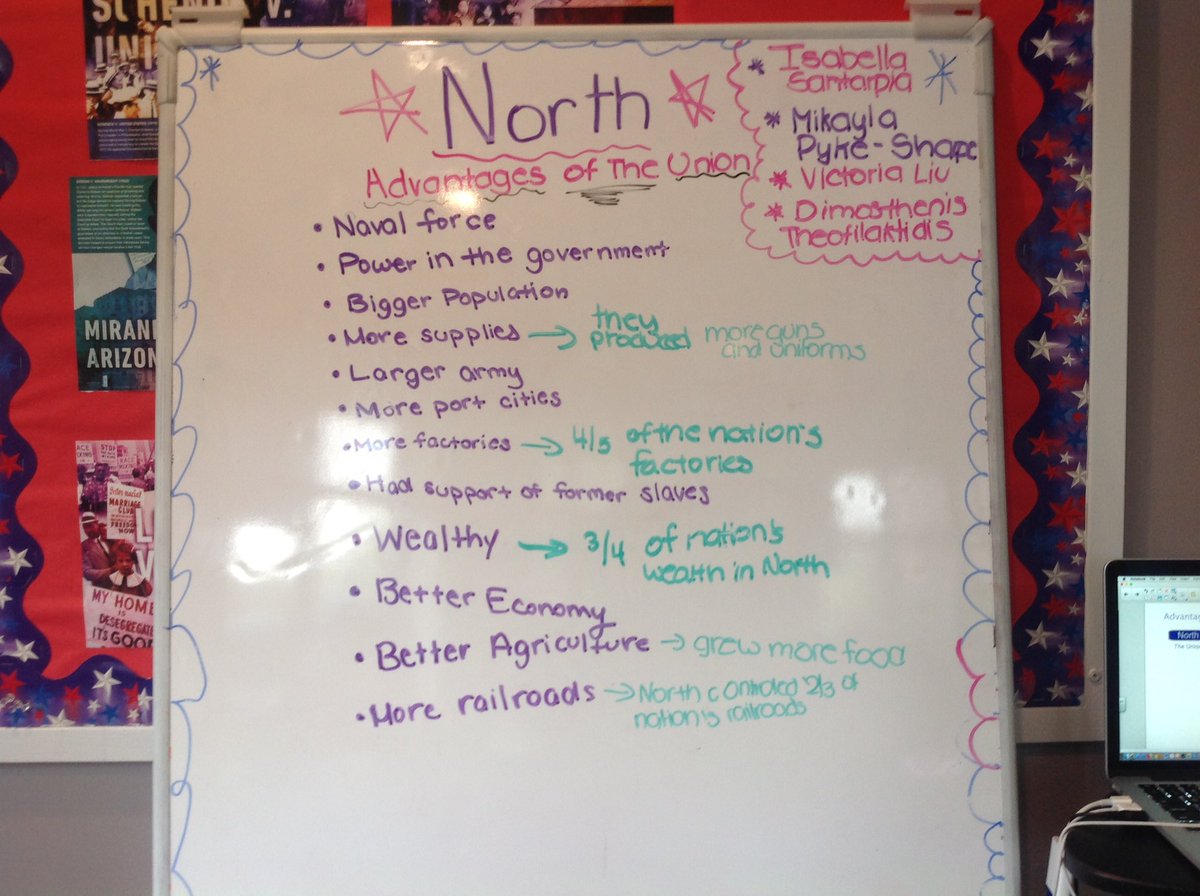 North
Advantages of The Union
* Isabella
Santarpia
* Mikayla
Pyke-Shape
* Victoria Liu
* Dimosthenis
Theofilaktidis
• Naval force
• Power in the government
• Bigger Population
• More supplies → they produced more guns and uniforms
• Larger army
• More port cities
• More factories → 4/5 of the nation's
factories
• Had support of former slaves
• Wealthy → 3/4 of nation's
wealth in North
• Better Economy
• Better Agriculture → grew more food
• More railroads → North controlled 2/3 of
nation's railroads
UNIO
MIRAN
ARIZON
STOP
MARRIAGE
CLUB
FREEDOM
NOW
MY HOME
IS
DESEGREGATE
ITS GOO
Advantag
North
The Unio